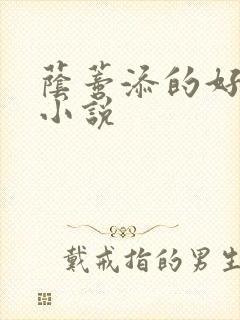 蔭蒂添的好
小說
戴戒指的男生